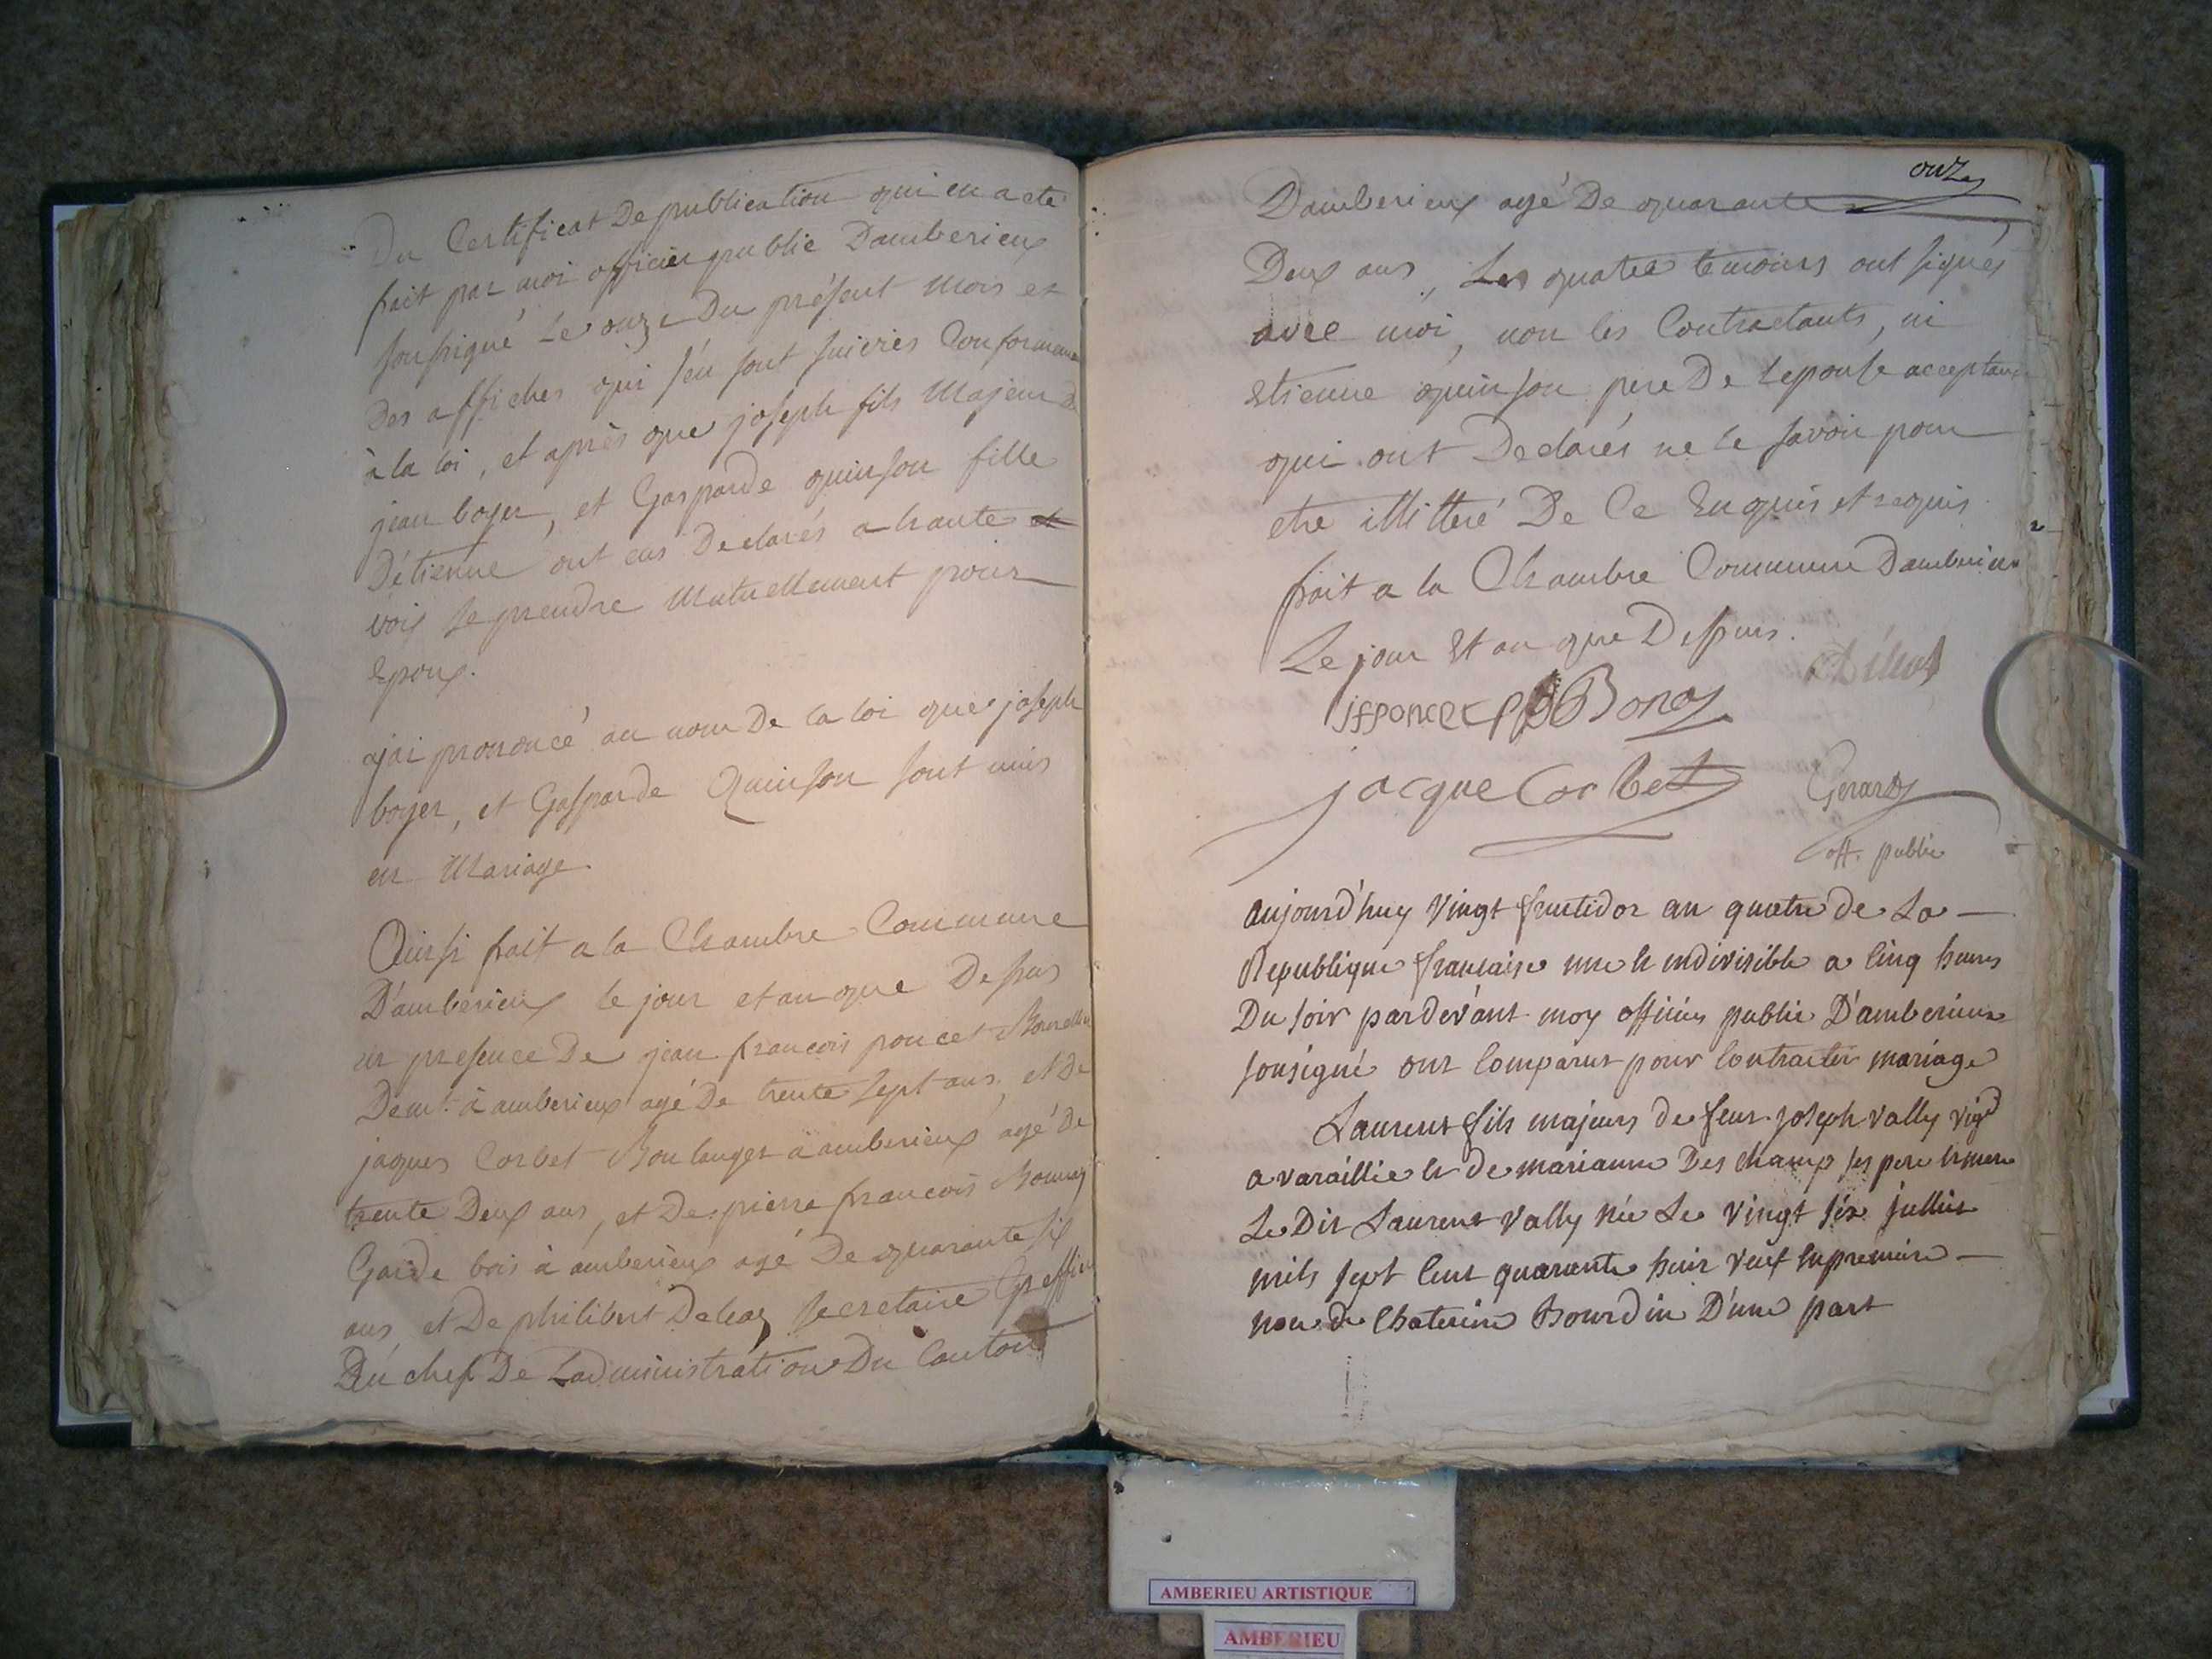 Du Certificat De publication qui en a eté
fait par moi officier public Damberieux
soussigné Le onze Du présent Mois et
Des affiches qui s'en sont suivies Conformem
à la loi, et après que joseph fils Majeur De
jean boyer, et Gasparde quinson fille
D'étienne ont eus Declarés a haute et
voix se prendre Mutuellement pour
Epoux.
j'ai prononcé au nom De la loi que joseph
boyer, et Gasparde Quinson sont unis
en Mariage
Ainsi fait a la Chambre Commune
D'amberieux le jour et an que Dessus
en presence De jean francois poncet
Demt. à amberieux agé De trente sept ans, et De
jaques Corbet Boulanger à amberieux agé de
trente Deux ans, et De pierre francois
Garde bois à amberieux agé De quarante six
ans et De philibert secretaire Greffier
En chef De L'administration Du Canton
onze
Damberieux agé De quarante
Deux ans, Les quatre temoins ont signés
avec moi, non les Contractants, ni
Etienne quinson pere De Lepouse acceptant
qui ont Declarés ne le savoir pour
etre illitteré De Ce Enquis et requis
fait a la Chambre Commune Damberieux
Le jour Et an que Dessus.
jfponcet
jacque Corbet Gerard
off. public
aujourd'huy vingt fructidor an quatre de La
Republique francaise une et indivisible a Cinq heures
Du soir pardevant moy officier public D'amberieux
sousigné ont Comparut pour Contracter mariage
Laurent fils majeurs de feut joseph vally
a varaillie et de marianne Des champ ses pere et mere
Le Dit Laurent vally née Le vingt six jullier
mils sept Cent quarante huit veuf
de Chaterine Bourdin D'une part
AMBERIEU ARTISTIQUE
AMBERIEU